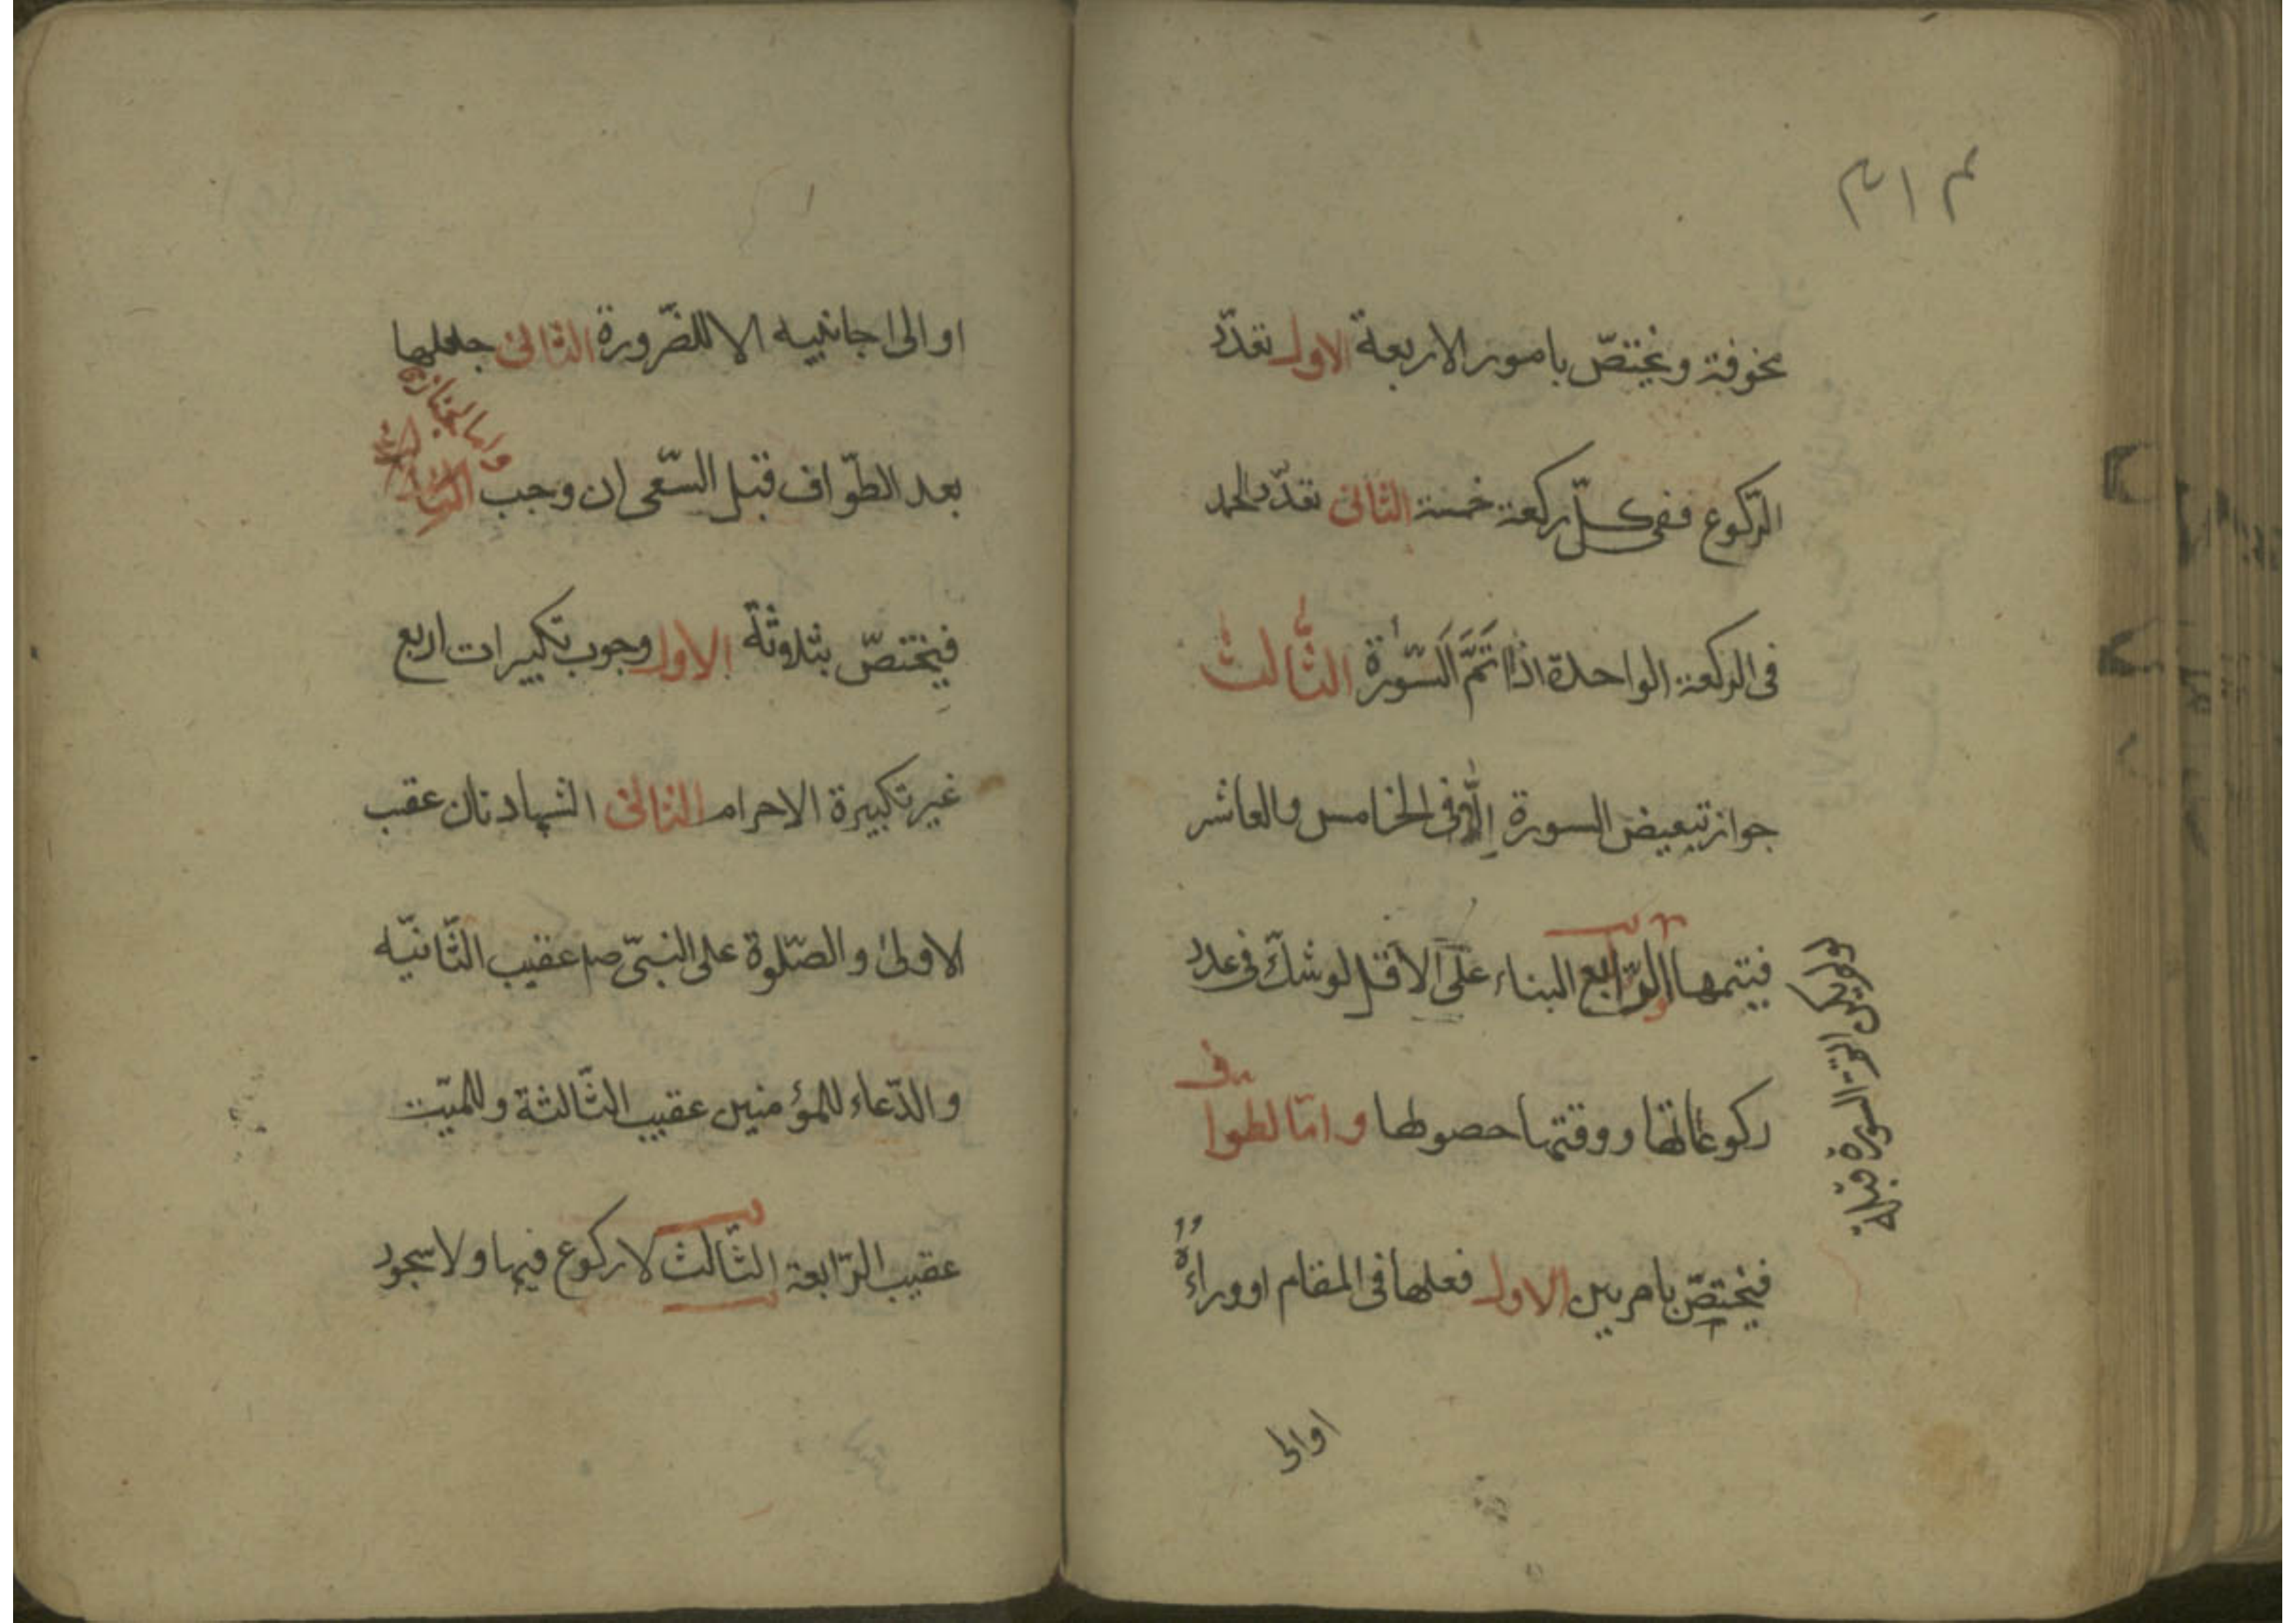 مخوفة ويختصّ بامور الاربعة الاول تعدّد
الرّكوع ففى كلّ ركعة خمسة الثانى تعدّد الحمد
فى الركعة الواحدة اذا اتَمَّ السّورة الثّالث
جواز تبعيض السورة الّا فى الخامس والعاشر
فيتمها الرّابع البناء على الاقل لو شكّ فى عدد
ركوعاتها ووقتها حصولها وامّا لطوا
ف
فيختصّ بامرين الاول فعلها فى المقام او وراءُه
السورة قبله
اوالى
او الى احد جانبيه الا للضّرورة الثانى جعلها
بعد الطّواف قبل السّعى ان وجب
واما الجنازة
فيختصّ بثلاوثة الاول وجوب تكبيرات اربع
غير تكبيرة الاحرام الثانى الشهادتان عقب
الاولى والصّلوة على النبىّ ص عقيب الثّانيّه
والدّعاء للمؤمنين عقيب الثّالثة وللميّت
عقيب الرّابعة الثّالث لا ركوع فيها ولا سجود